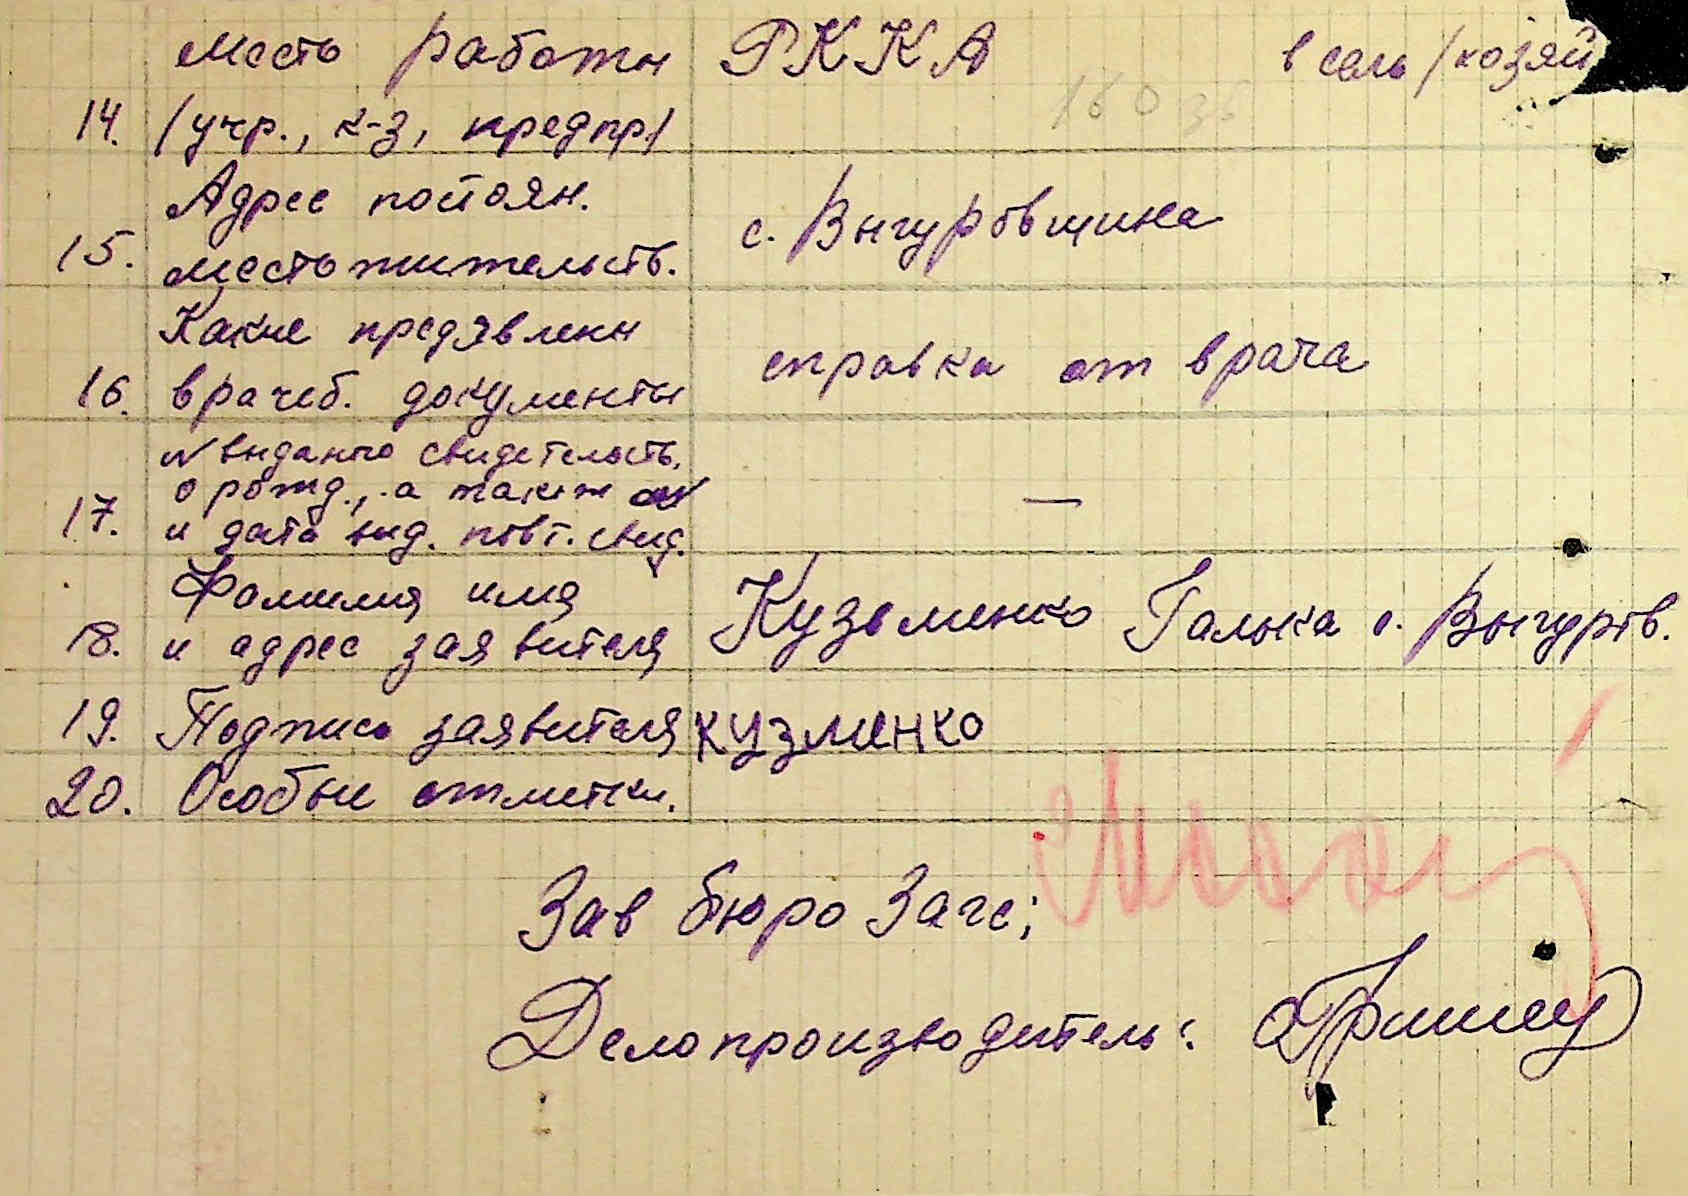 место работы РККА в сель/хозяй
14. (учр., к-з, предпр)
Адрес постоян.
15. местожительств. с. Выгуровщина
Какие предявлены
16. врачеб. документы справка от врача
№ выданно свидетельств.
о рожд., а также №
17. и дата выд. повт. свид. —
Фамилия имя
18. и адрес заявителя Кузьменко Галька с. Выгуров.
19. Подпись заявителя кузменко
20. Особые отметки.
Зав бюро Загс;
Делопроизводитель: